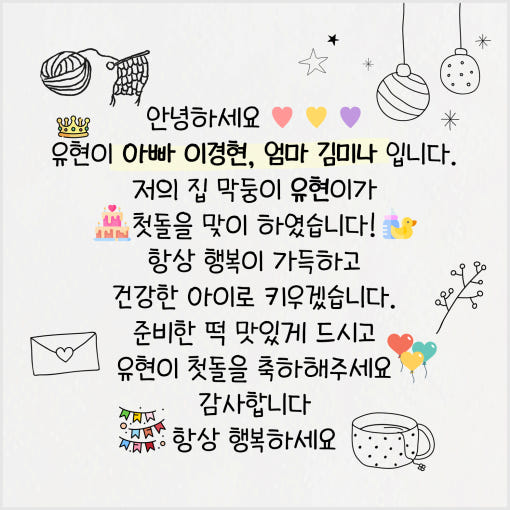 안녕하세요
유현이 아빠 이경현, 엄마 김미나 입니다.
저의 집 막둥이 유현이가
첫돌을 맞이 하였습니다!
항상 행복이 가득하고
건강한 아이로 키우겠습니다.
준비한 떡 맛있게 드시고
유현이 첫돌을 축하해주세요
감사합니다
항상 행복하세요